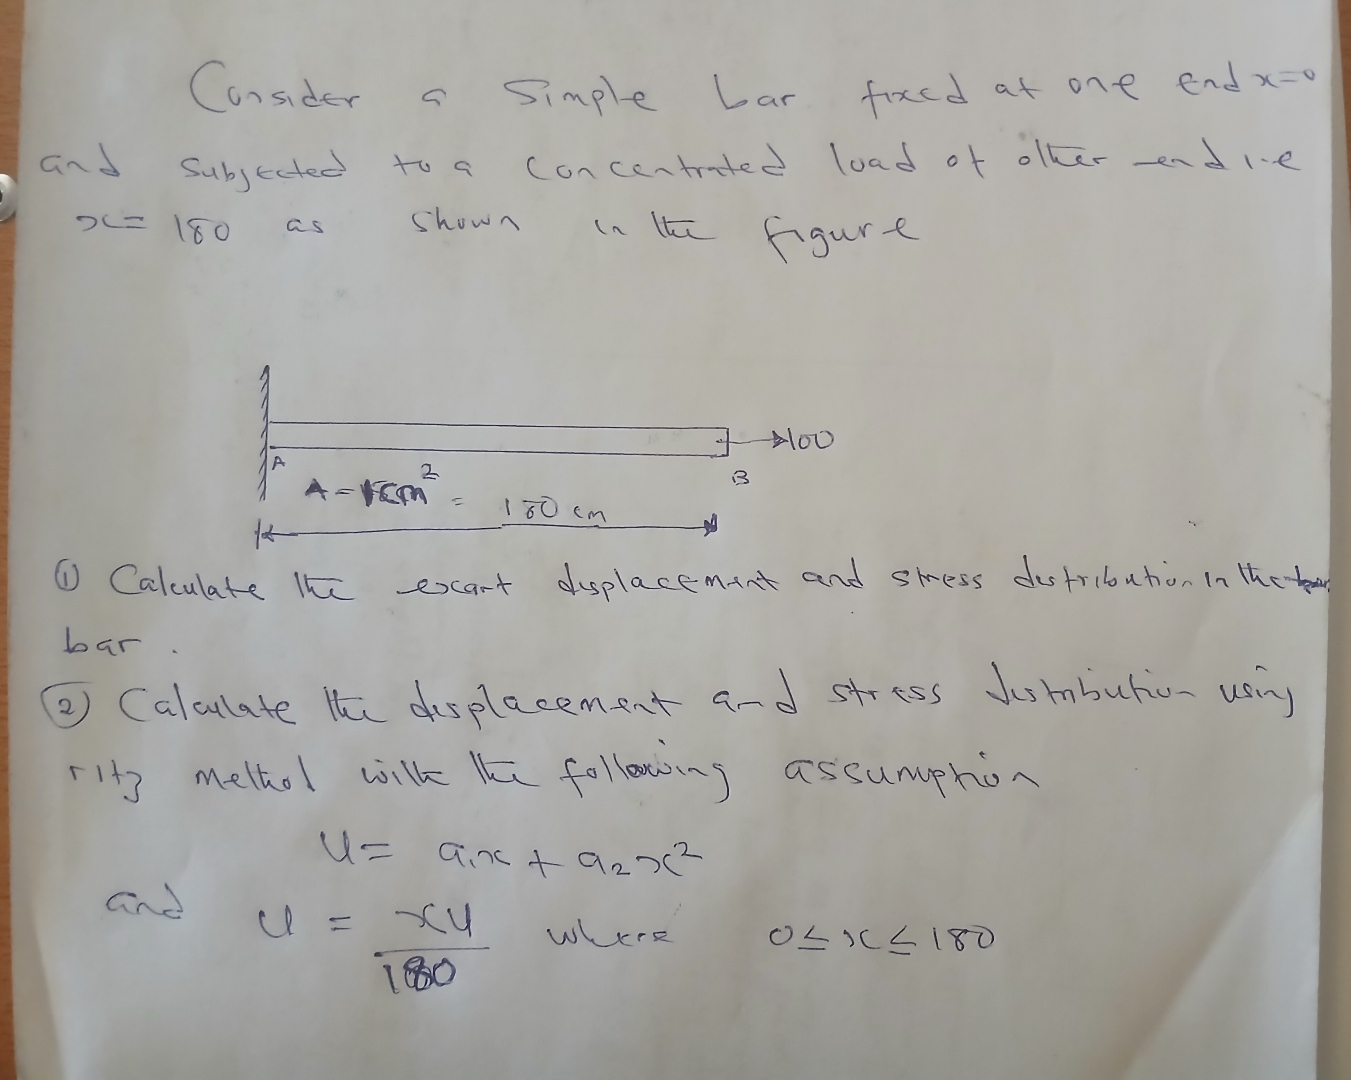 Consider a Simple bar fixed at one end x=0
and subjected to a concentrated load at other end i.e
x= 180 as shown in the figure
100
A
B
A = 1cm² = 180 cm
① Calculate the excart displacement and stress distribution in the
bar.
② Calculate the displacement and stress distribution using
ritz method with the following assumption
U= a₁x + a₂x²
and U = xU/180 where 0≤x≤180